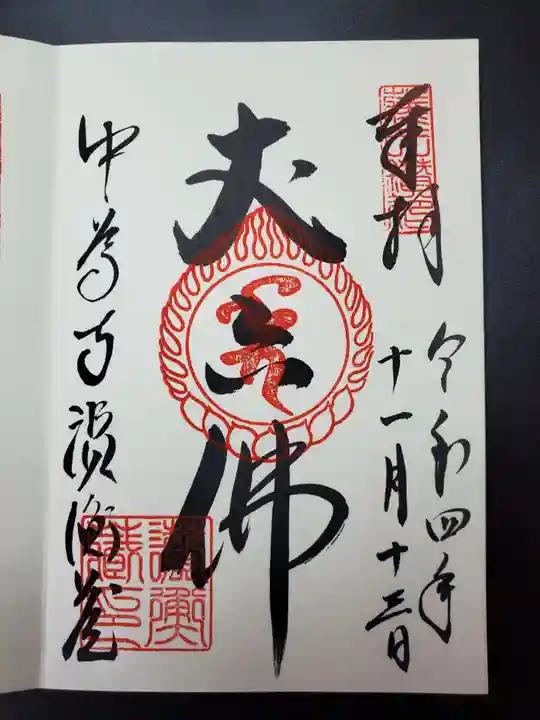 奉拝
令和四年
十一月十三日
丈六佛
中尊寺讃衡蔵
讃衡蔵印